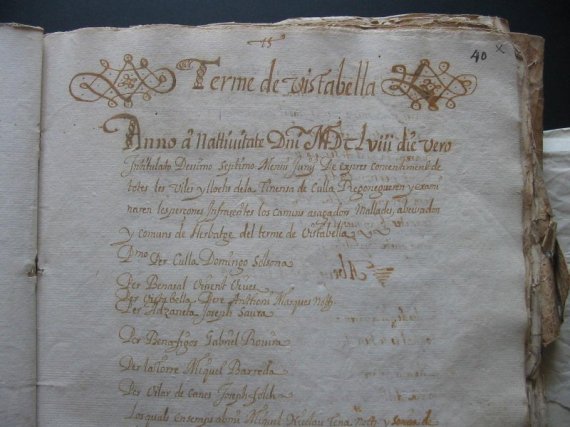 40 x
Terme de Vistabella
Anno a Nattivitate Dni MDCLviii die vero
Intitulato Decimo Septimo Mensis Junij De expres consentiment de
totes les Viles y llochs de la Tinensa de Culla Regonegueren y exami
naren les persones Infrascrites los camins asagadors Mallades, abeuradors
y comuns de Herbatge del terme de Vistabella
Per Culla Domingo Solsona
Per Benasal Visent Vives
Per Vistabella Pere Anthoni Marques Nott
Per Adzaneta Joseph Saura
Per Benafigos Gabriel Rovira
Per la Torre Miquel Barreda
Per Vilar de Canes Joseph Folch
Los quals ensemps ab mi Miquel Nicolau Tena Nott y